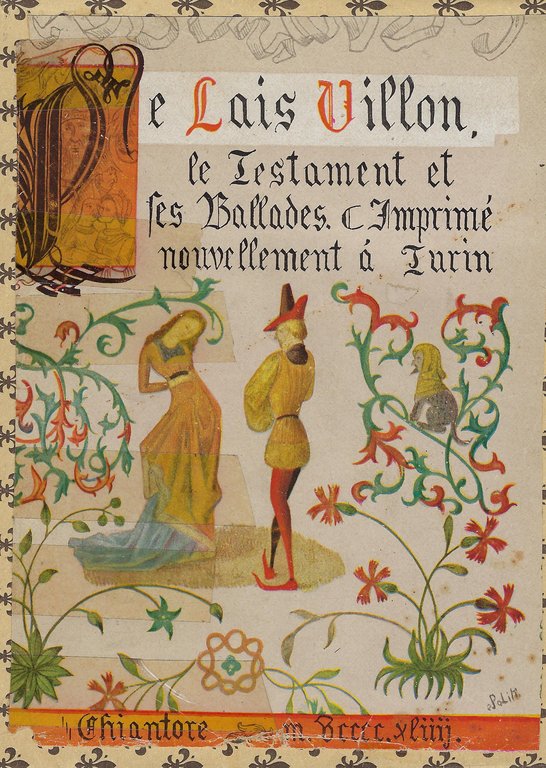 Le Lais Villon,
le Testament et
ses Ballades. ⊂ Imprimé
nouvellement á Turin
Chiantore m. Dcccc.xliiij.